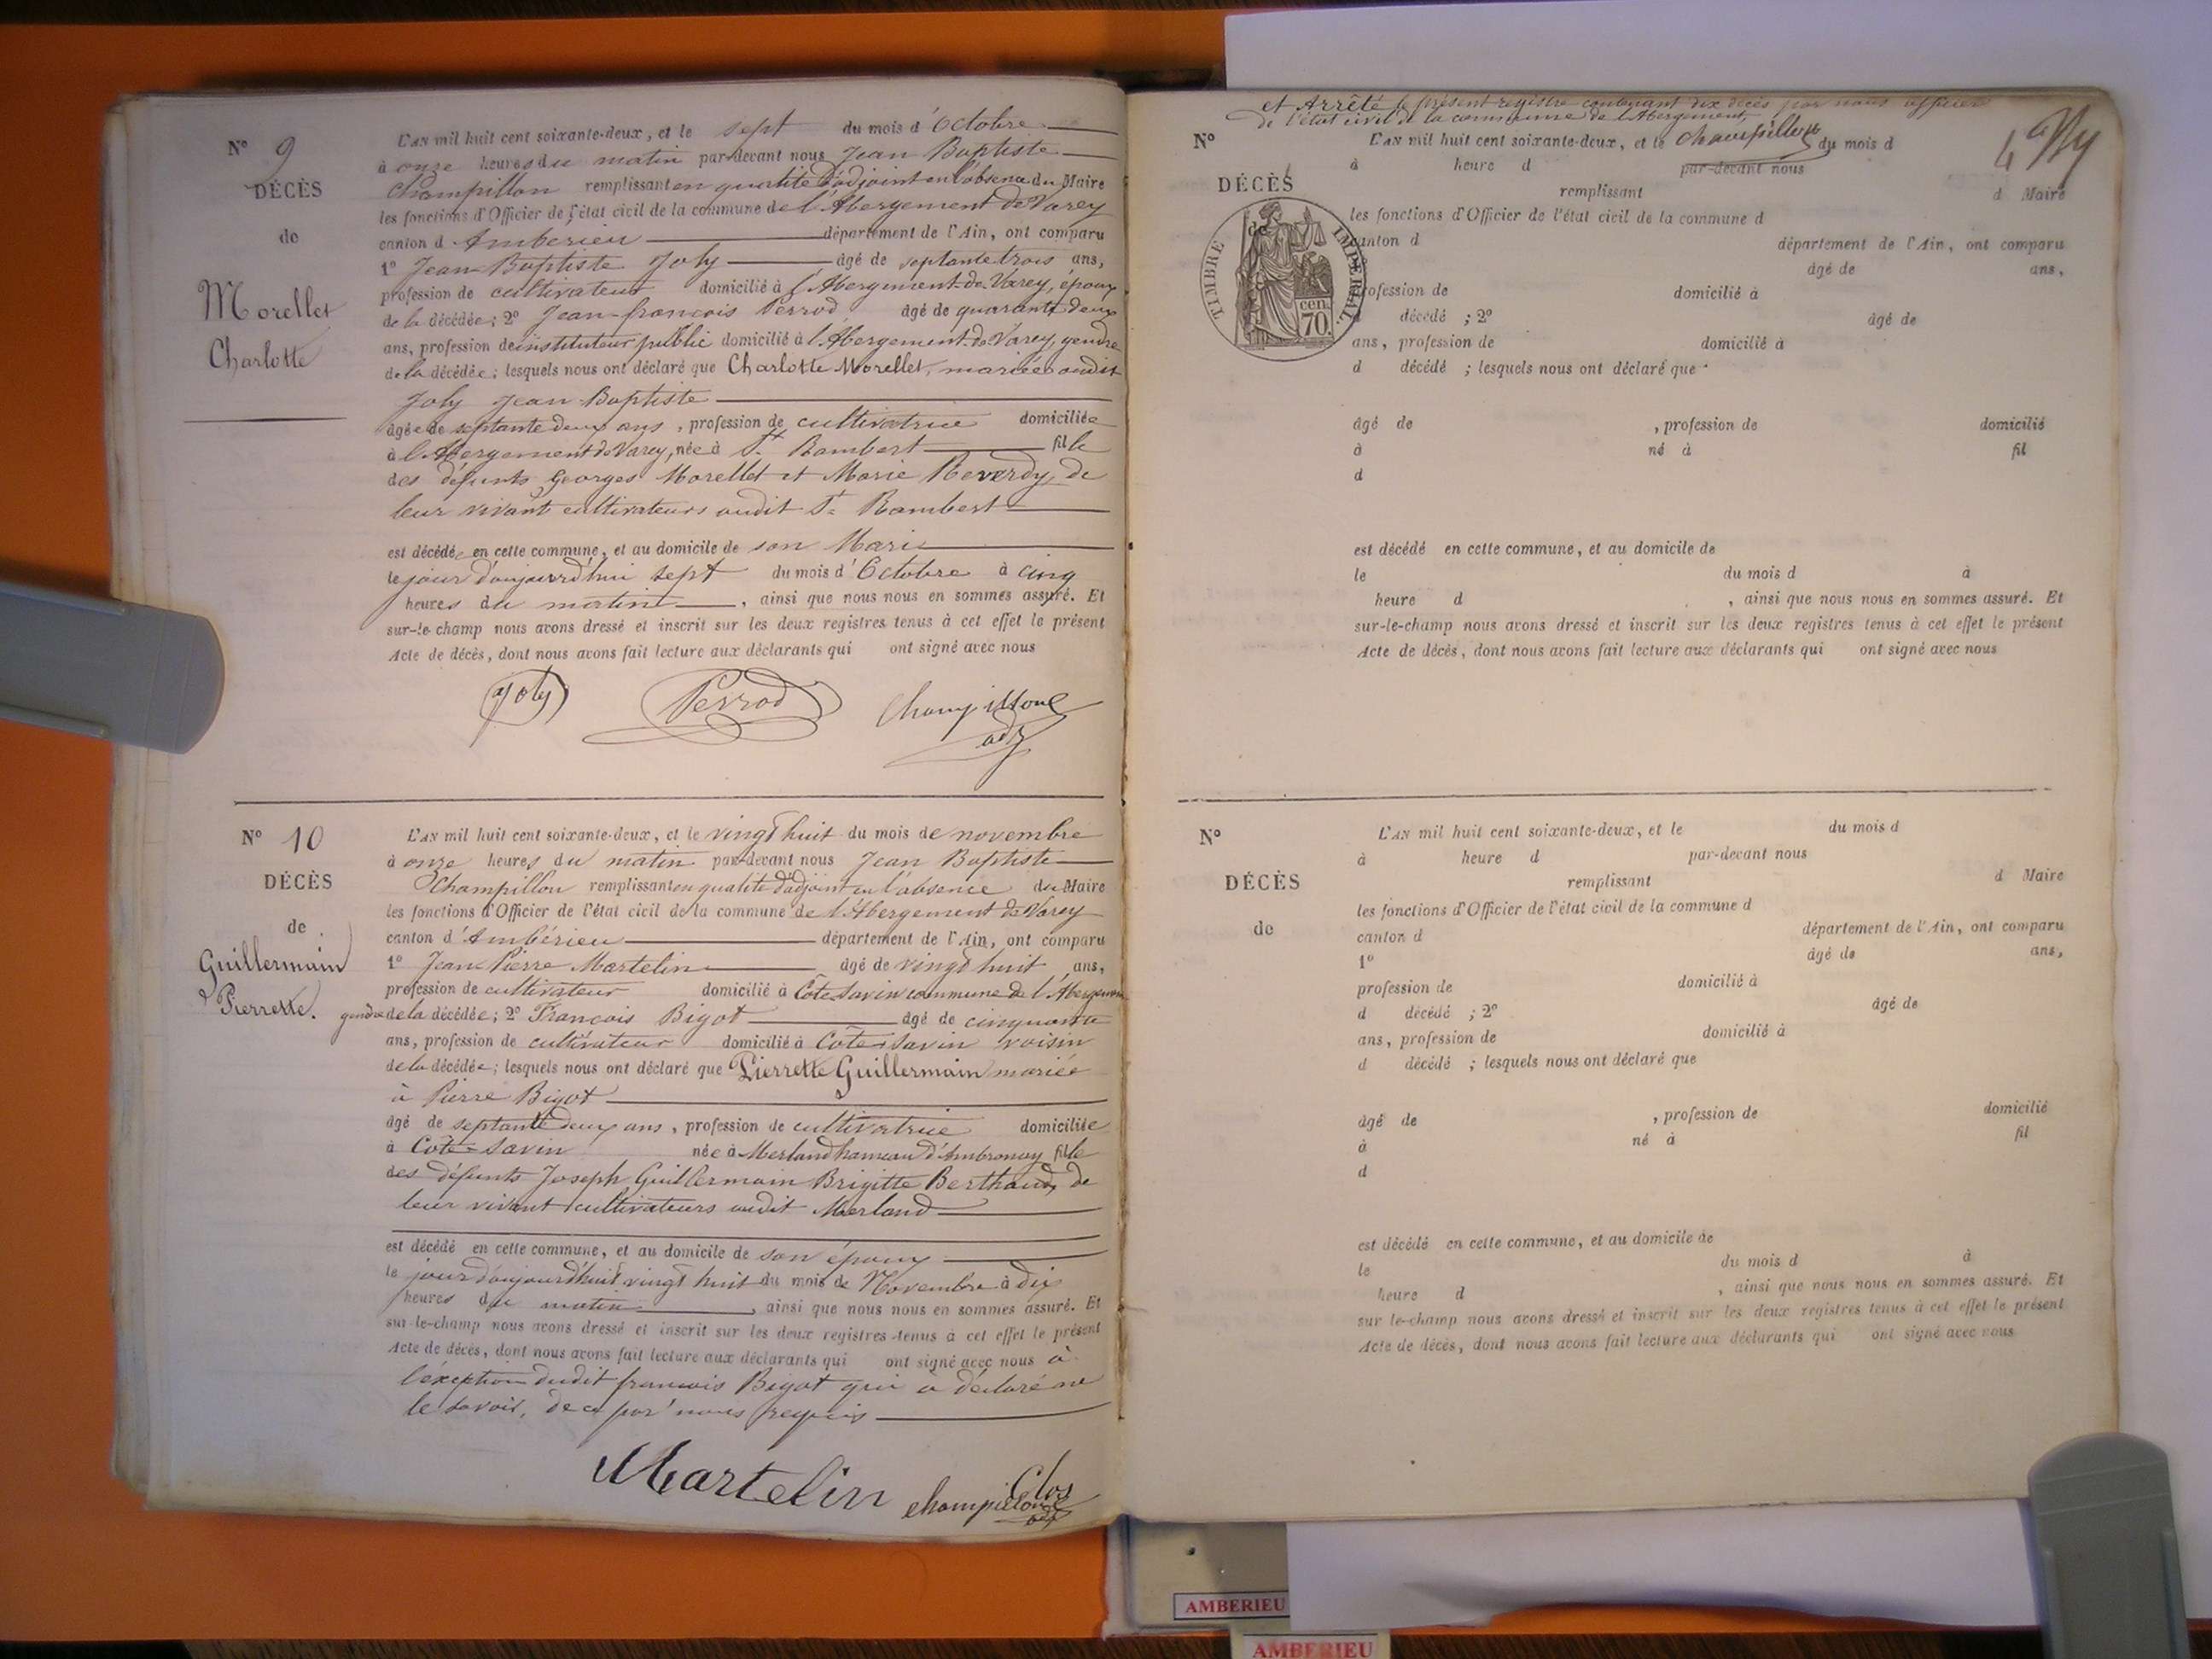 N° 9
DÉCÈS
de
Morellet
Charlotte
L'AN mil huit cent soixante-deux, et le sept du mois d'Octobre
à onze heures du matin par-devant nous Jean Baptiste
Champillon remplissant en qualité d'adjoint en l'absence du Maire
les fonctions d'Officier de l'état civil de la commune de l'Abergement de Varey
canton d'Amberieu département de l'Ain, ont comparu
1° Jean-Baptiste Joly âgé de septante trois ans,
profession de cultivateur domicilié à l'Abergement-de-Varey, époux
de la décédée; 2° Jean-francois Perrod âgé de quarante deux
ans, profession de instituteur public domicilié à l'Abergement-de-Varey, gendre
de la décédée; lesquels nous ont déclaré que Charlotte Morellet, mariée audit
Joly Jean-Baptiste
âgée de septante deux ans, profession de cultivatrice domiciliée
à l'Abergement de Varey, née à St. Rambert fille
des défunts Georges Morellet et Marie Reverdy, de
leur vivant cultivateurs audit St. Rambert
est décédée en cette commune, et au domicile de son Mari
le jour d'aujourd'hui sept du mois d'Octobre à cinq
heures du matin, ainsi que nous nous en sommes assuré. Et
sur-le-champ nous avons dressé et inscrit sur les deux registres tenus à cet effet le présent
Acte de décès, dont nous avons fait lecture aux déclarants qui ont signé avec nous
Joly Perrod Champillon
adj
N° 10
DÉCÈS
de
Guillermain
Pierrette.
L'AN mil huit cent soixante-deux, et le vingt huit du mois de novembre
à onze heures du matin par-devant nous Jean Baptiste
Champillon remplissant en qualité d'adjoint en l'absence du Maire
les fonctions d'Officier de l'état civil de la commune de l'Abergement de Varey
canton d'Ambérieu département de l'Ain, ont comparu
1° Jean Pierre Martelin âgé de vingt huit ans,
profession de cultivateur domicilié à Côte Savin commune de l'Abergement
gendre de la décédée; 2° Francois Bigot âgé de cinquante
ans, profession de cultivateur domicilié à Côte-Savin voisin
de la décédée; lesquels nous ont déclaré que Pierrette Guillermain mariée
à Pierre Bigot
âgé de septante deux ans, profession de cultivatrice domiciliée
à Côte-Savin née à Merland hameau d'Ambronay fille
des défunts Joseph Guillermain Brigitte Berthaud, de
leur vivant cultivateurs audit Merland
est décédé en cette commune, et au domicile de son époux
le jour d'aujourd'hui vingt huit du mois de Novembre à dix
heures du matin, ainsi que nous nous en sommes assuré. Et
sur-le-champ nous avons dressé et inscrit sur les deux registres tenus à cet effet le présent
Acte de décès, dont nous avons fait lecture aux déclarants qui ont signé avec nous à
l'exception dudit francois Bigot qui a déclaré ne
le savoir, de ce par nous requis
Martelin Clos
Champillon
adj
et Arrêté le présent registre contenant dix décès par nous officier
de l'état civil de la commune de l'Abergement
N° L'AN mil huit cent soixante-deux, et le Champillon du mois d
à heure d par-devant nous
DÉCÈS
remplissant d Maire
les fonctions d'Officier de l'état civil de la commune d
de
TIMBRE IMPÉRIAL
70 cen.
canton d département de l'Ain, ont comparu
âgé de ans,
profession de domicilié à
décédé ; 2° âgé de
ans, profession de domicilié à
d décédé ; lesquels nous ont déclaré que
âgé de , profession de domicilié
à né à fil
d
est décédé en cette commune, et au domicile de
le du mois d à
heure d , ainsi que nous nous en sommes assuré. Et
sur-le-champ nous avons dressé et inscrit sur les deux registres tenus à cet effet le présent
Acte de décès, dont nous avons fait lecture aux déclarants qui ont signé avec nous
N°
DÉCÈS
de
L'AN mil huit cent soixante-deux, et le du mois d
à heure d par-devant nous
remplissant d Maire
les fonctions d'Officier de l'état civil de la commune d
canton d département de l'Ain, ont comparu
1° âgé de ans,
profession de domicilié à
d décédé ; 2° âgé de
ans, profession de domicilié à
d décédé ; lesquels nous ont déclaré que
âgé de , profession de domicilié
à né à fil
d
est décédé en cette commune, et au domicile de
le du mois d à
heure d , ainsi que nous nous en sommes assuré. Et
sur le-champ nous avons dressé et inscrit sur les deux registres tenus à cet effet le présent
Acte de décès, dont nous avons fait lecture aux déclarants qui ont signé avec nous
AMBERIEU
AMBERIEU